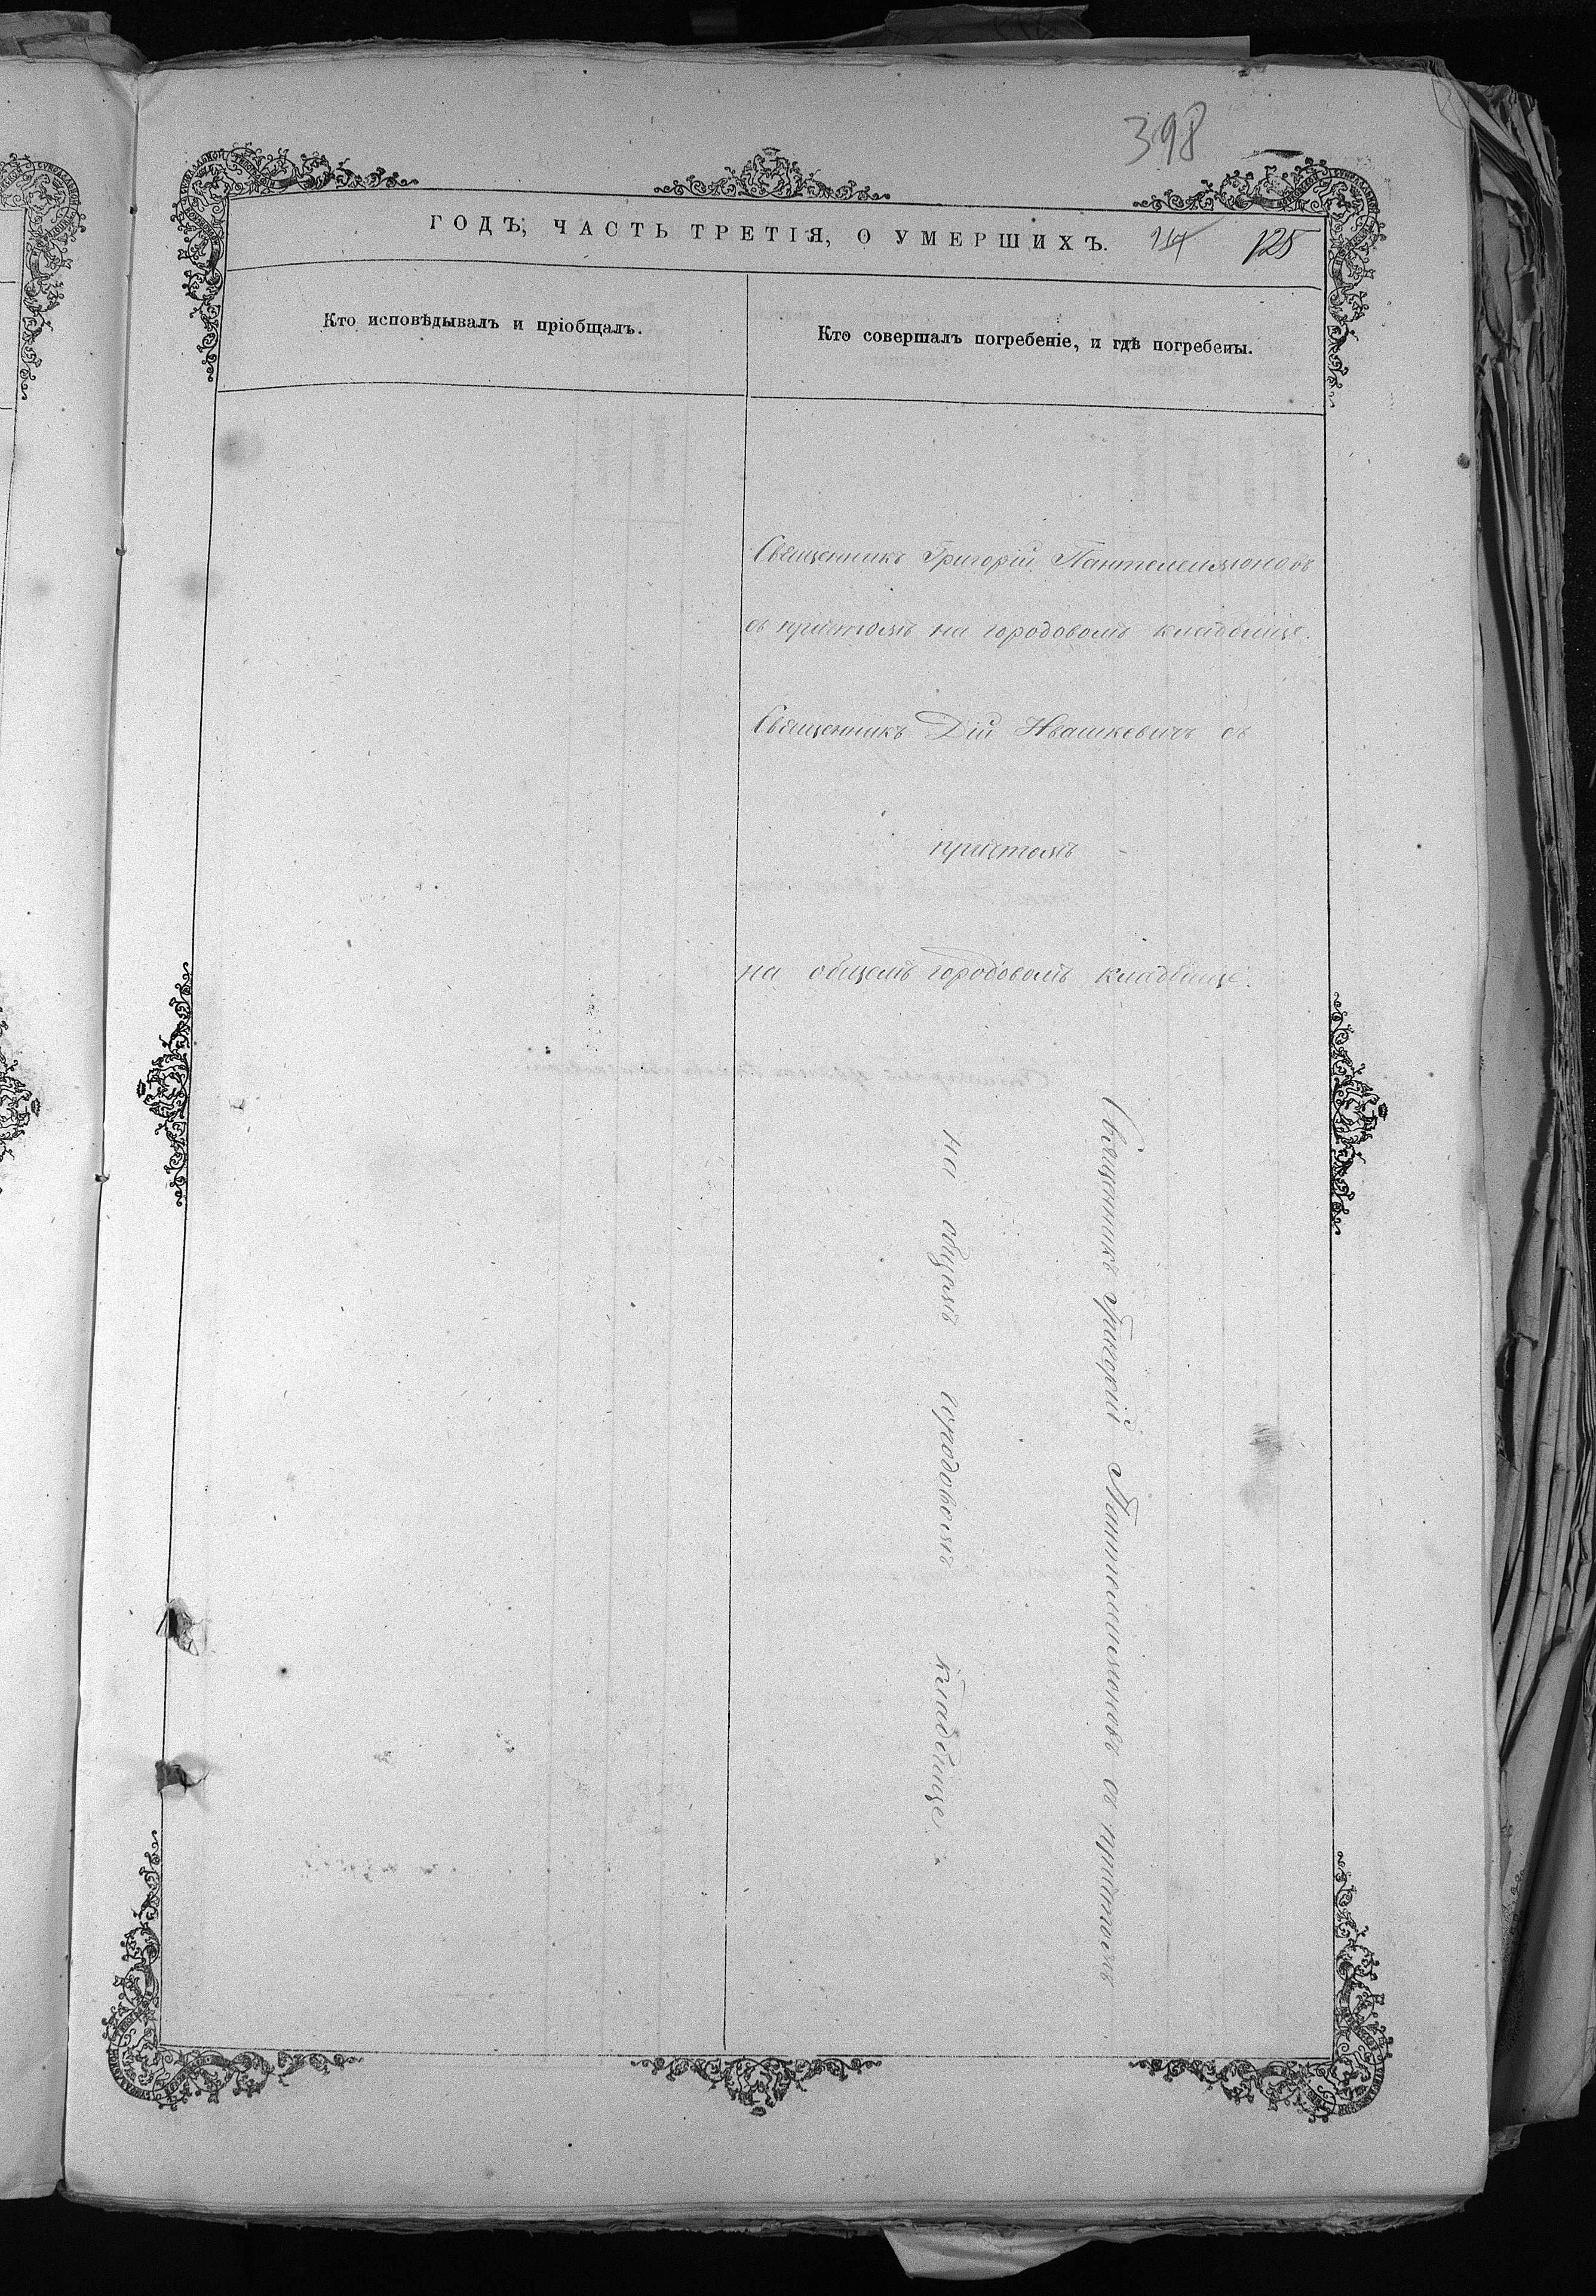 398
ГОДЪ, ЧАСТЬ ТРЕТІЯ, О УМЕРШИХЪ.
125
Кто исповѣдывалъ и пріобщалъ.
Кто совершалъ погребеніе, и гдѣ погребены.
Священникъ Григорій Пантелеимоновъ
съ причтомъ на городовомъ кладбищѣ.
Священникъ Дій Ивашкевичъ съ
причтомъ
на общемъ городовомъ кладбищѣ.
Священникъ Григорій Пантелеимоновъ съ причтомъ
на общемъ городовомъ кладбище.